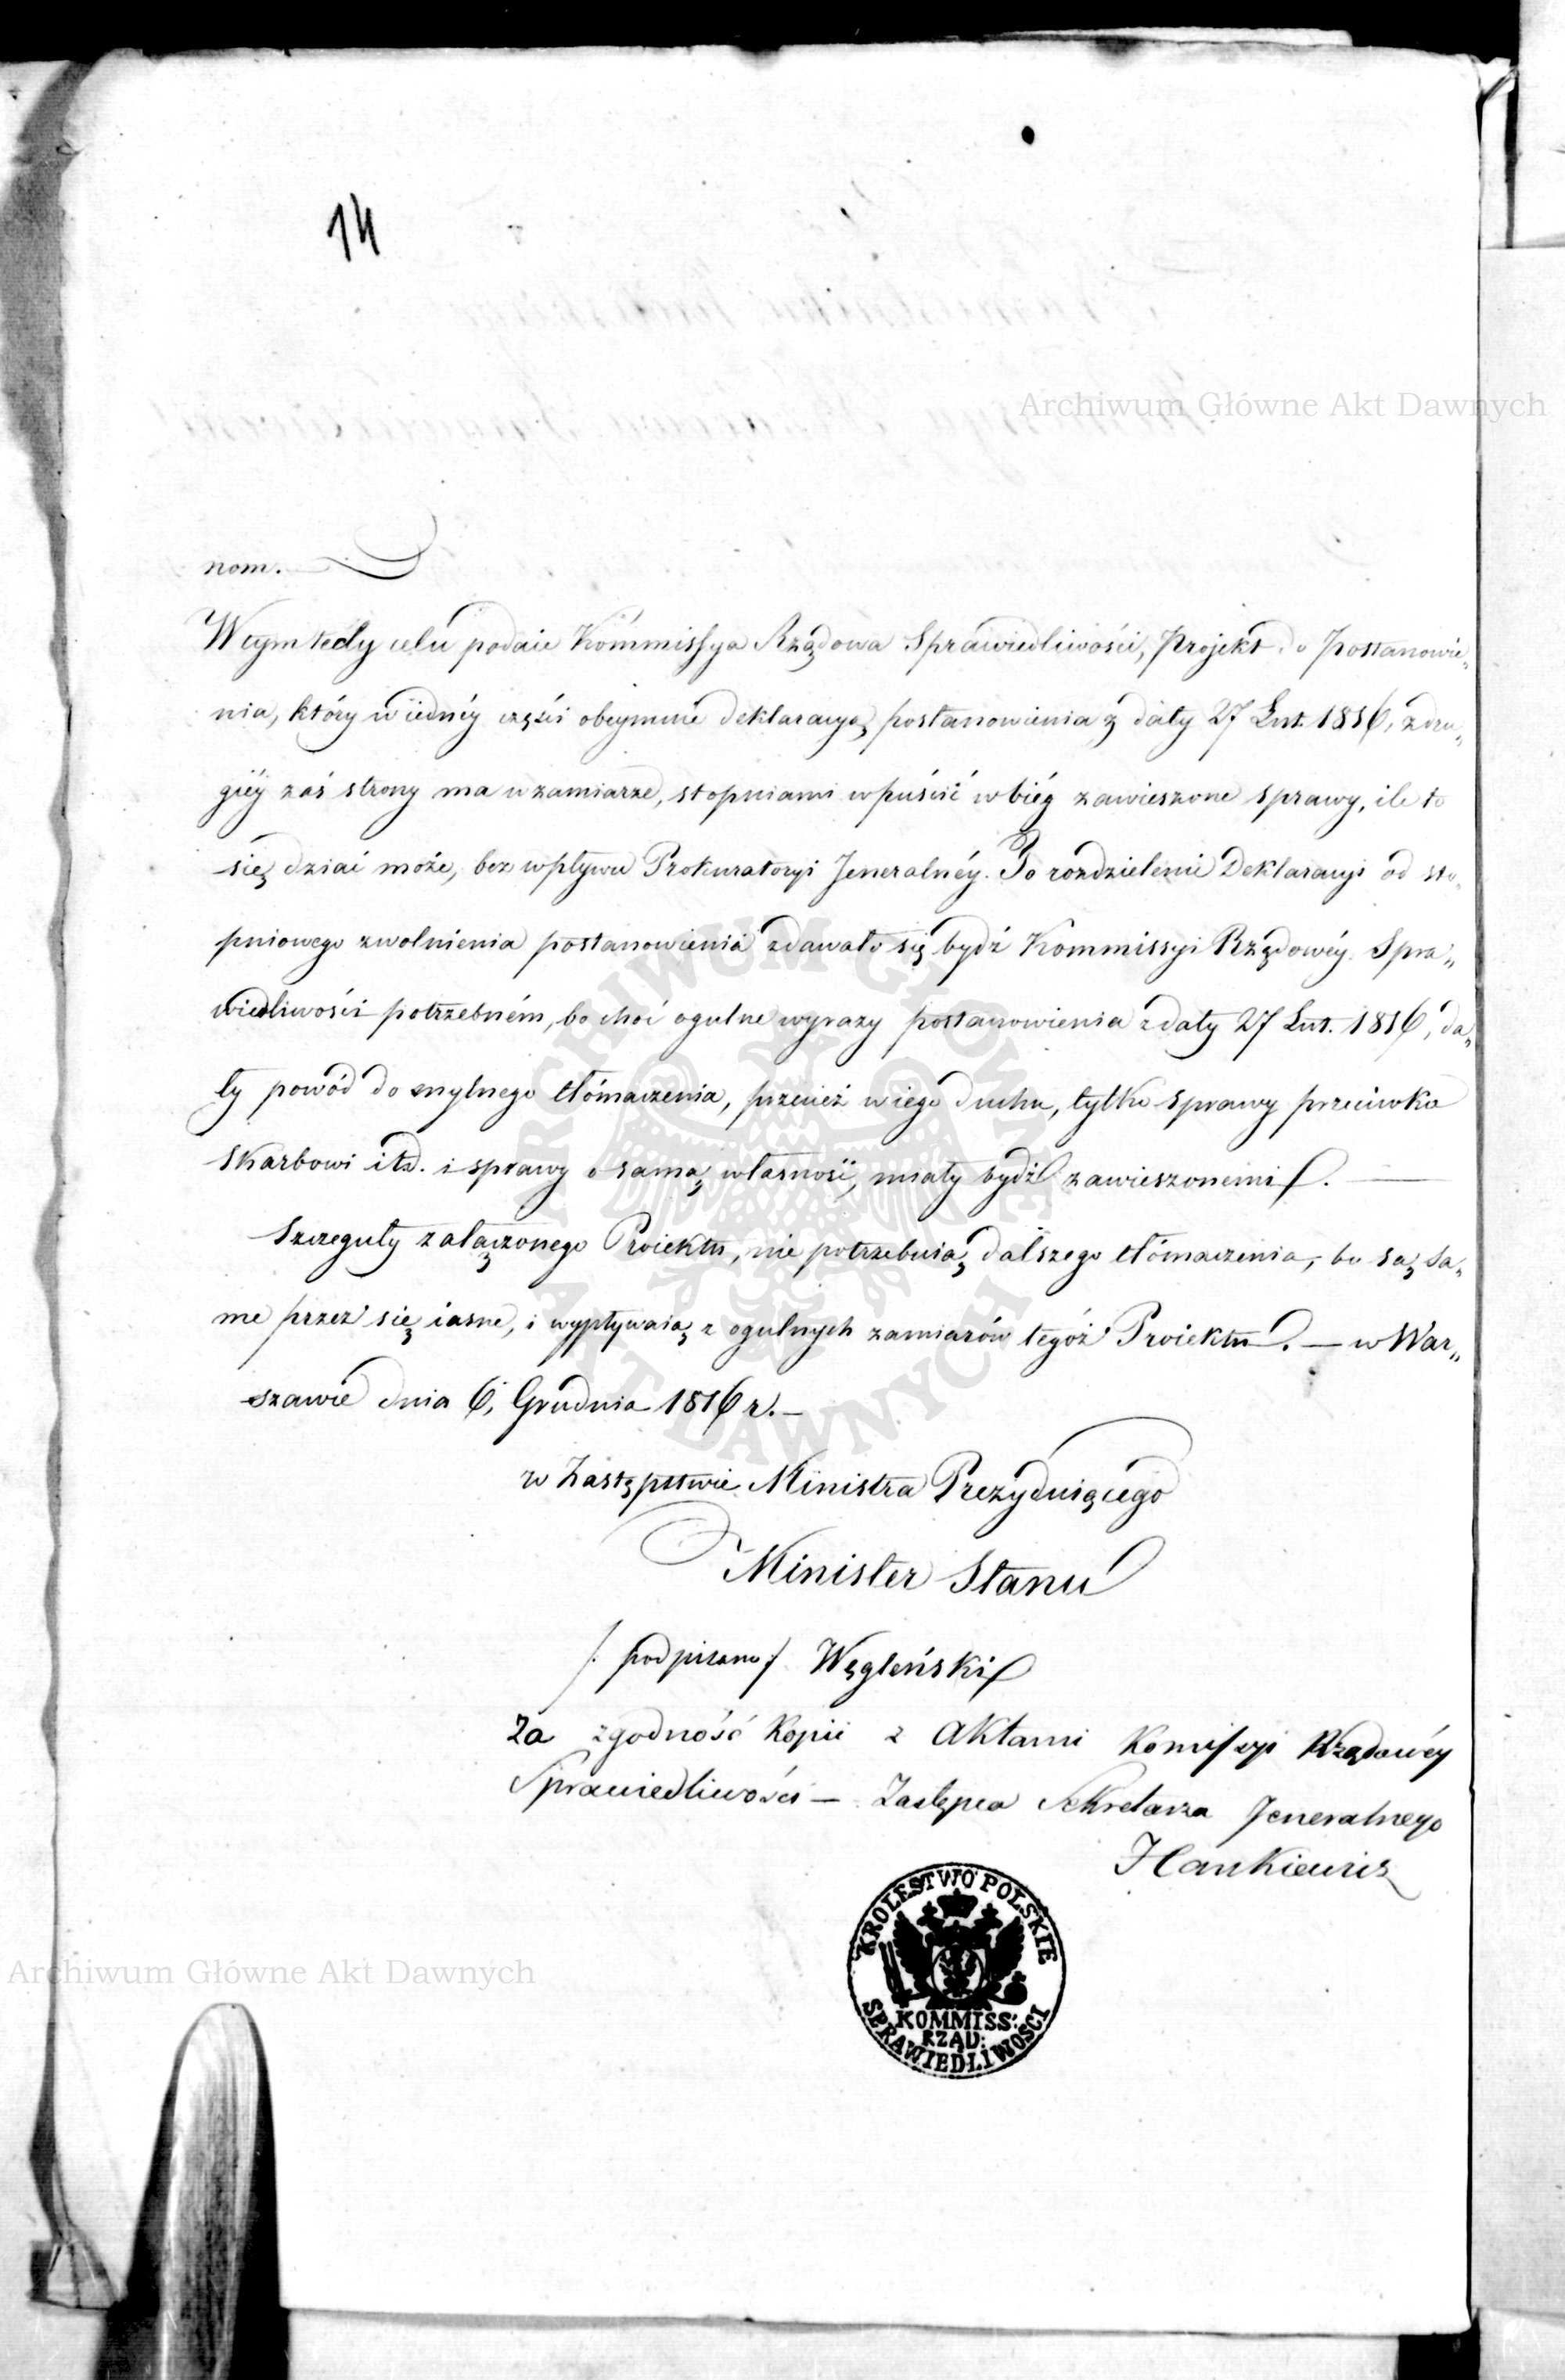 14
Archiwum Główne Akt Dawnych
nom.
W tym tedy celu podaie Kommissya Rządowa Sprawiedliwości, Projekt do Postanowie„
nia, który w iednéy części obeymuie deklaracyą postanowienia z daty 27 Lut. 1816, z dru„
giéy zaś strony ma w zamiarze, stopniami wpuścić w bieg zawieszone sprawy, ile to
się dziać może, bez wpływu Prokuratoryi Jeneralnéy. To rozdzielenie Deklaracyi od sto„
pniowego zwolnienia postanowienia zdawało się bydź Kommissyi Rządowéy Spra„
wiedliwości potrzebném, bo choć ogulne wyrazy postanowienia z daty 27 Lut. 1816, da„
ły powód do mylnego tłómaczenia, przecież w iego duchu, tylko sprawy przeciwko
Skarbowi itd. i sprawy o samą własność, miały bydź zawieszonemi.
Szczeguły załączonego Proiektu, nie potrzebuią dalszego tłómaczenia, bo są sa„
me przez się iasne, i wypływaią z ogulnych zamiarów tegóż Proiektu. — w War„
szawie dnia 6, Grudnia 1816 r. —
w Zastępstwie Ministra Prezyduiącego
Minister Stanu
/. podpisano / Węgleński
Za zgodność Kopii z Aktami Komissyi Rządowéy
Sprawiedliwości — Zastępca Sekretarza Jeneralnego
Hankiewicz
KROLESTWO POLSKIE
KOMMISS:
RZĄD:
SPRAWIEDLIWOSCI
Archiwum Główne Akt Dawnych
ARCHIWUM GŁÓWNE
AKT DAWNYCH